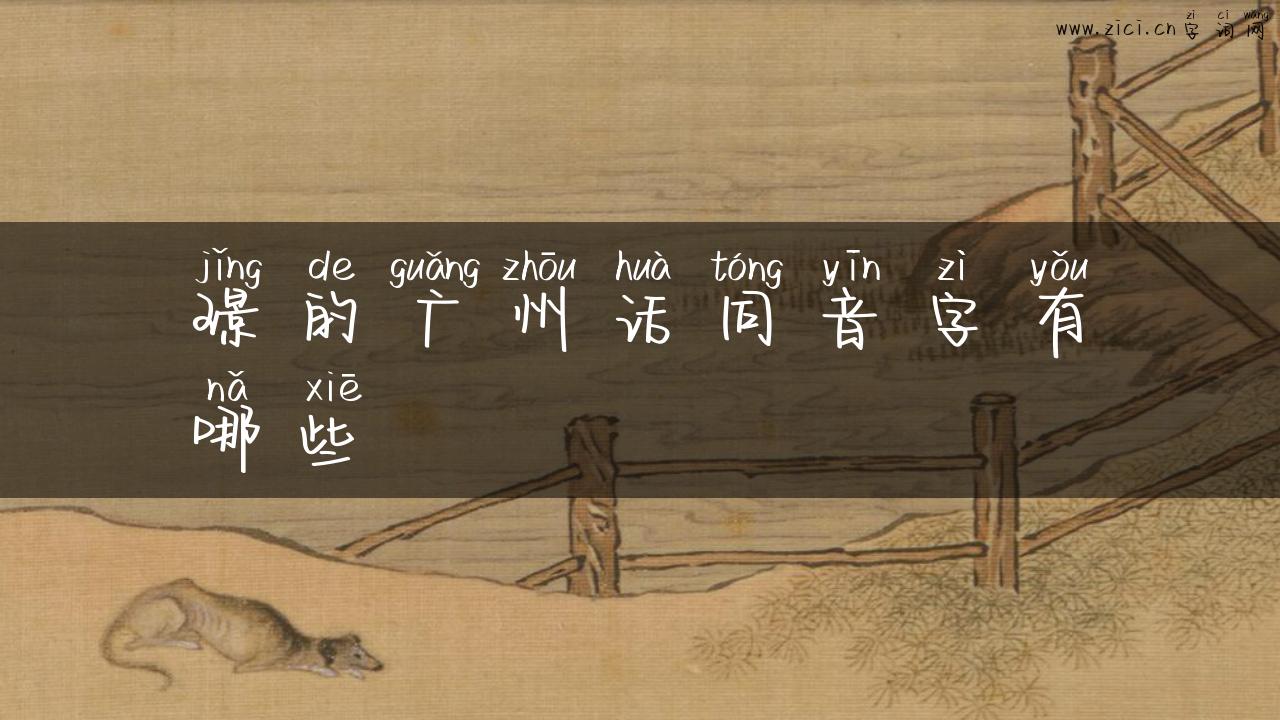 www.zici.cn zì cí wǎng 字词网
jǐng de guǎng zhōu huà tóng yīn zì yǒu
璟的广州话同音字有
nǎ xiē
哪些